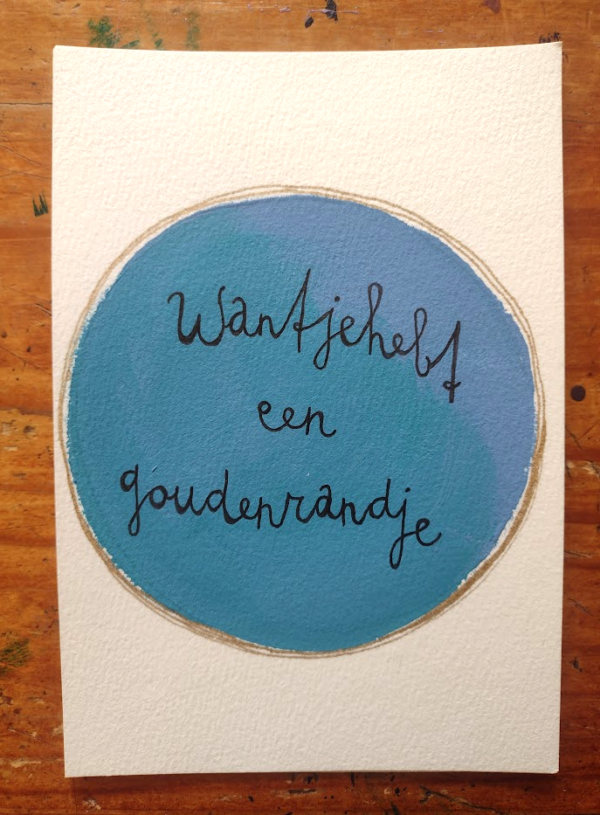 Wantjehebt
een
goudenrandje